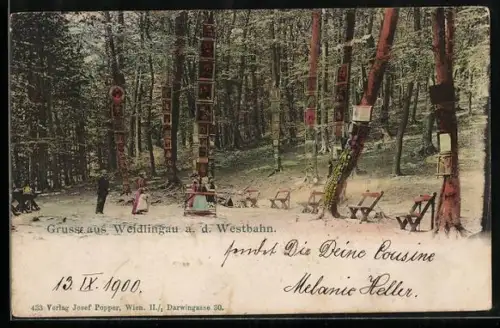 Gruss aus Weidlingau a. d. Westbahn.
sendet Dir Deine Cousine
13. IX. 1900.
Melanie Heller.
423 Verlag Josef Popper, Wien. II./, Darwingasse 30.